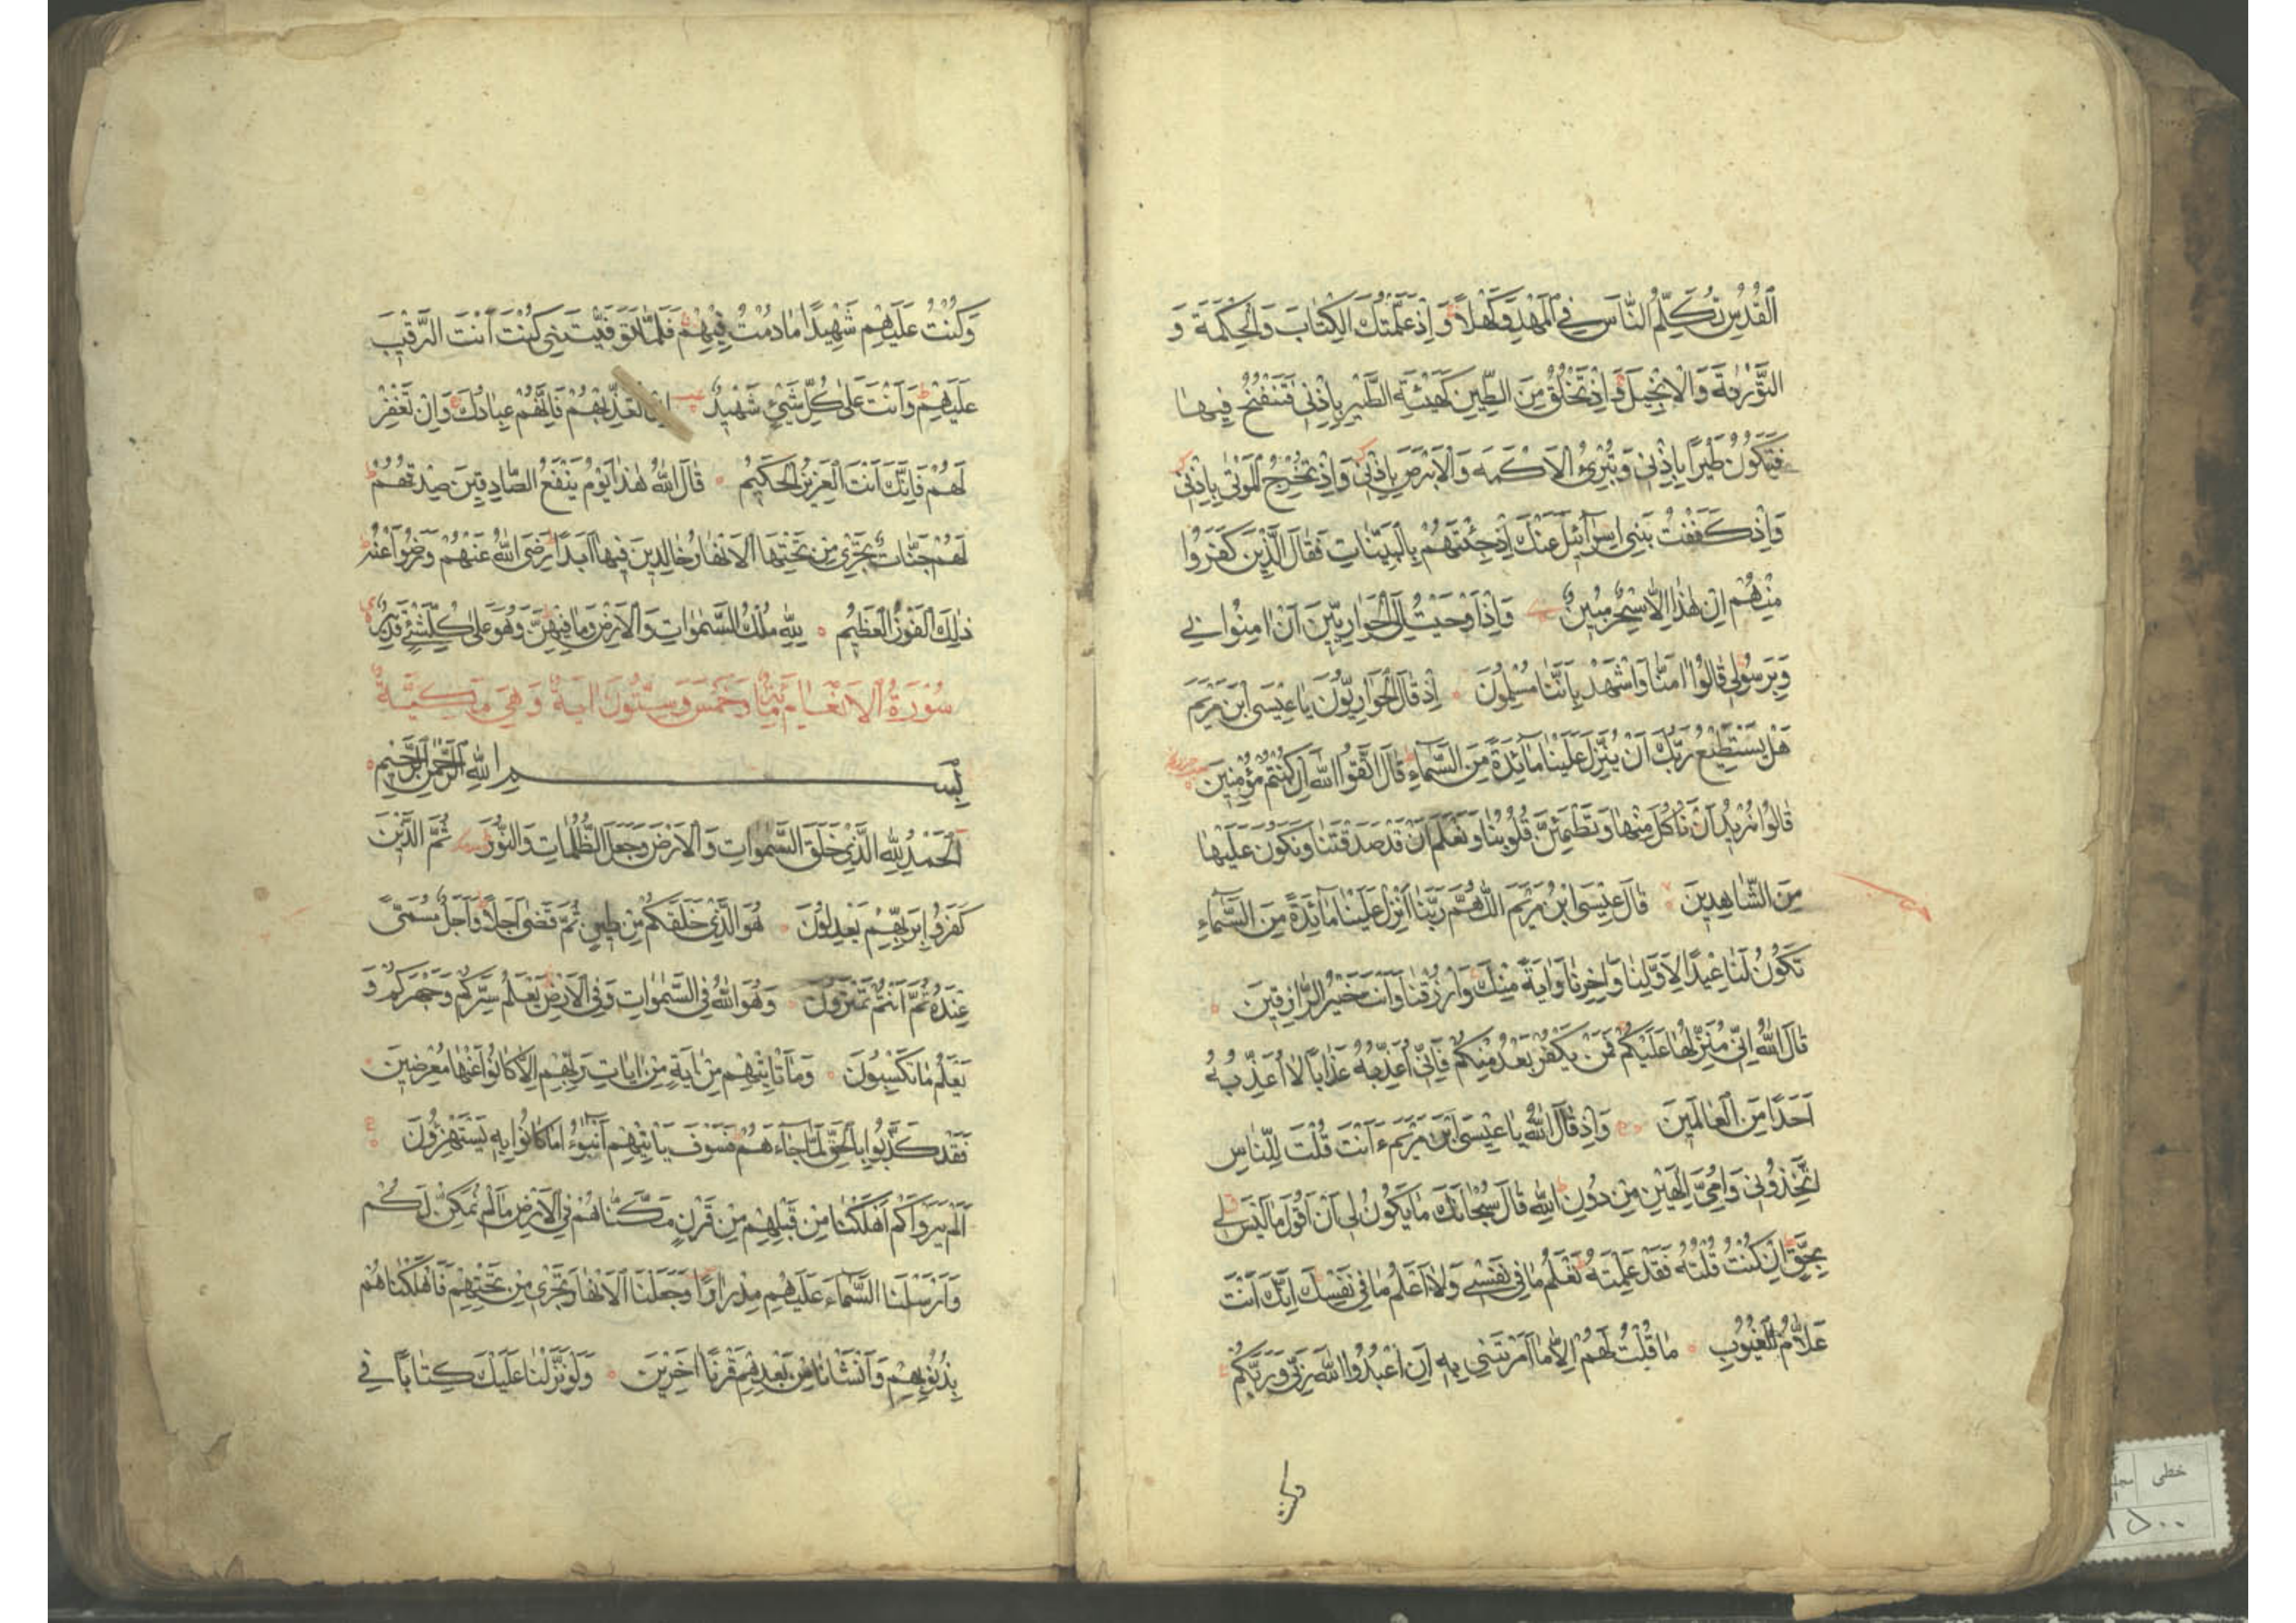 الْقُدُسِ تُكَلِّمُ النَّاسَ فِي الْمَهْدِ وَكَهْلًا وَاِذْ عَلَّمْتُكَ الْكِتَابَ وَالْحِكْمَةَ وَ
التَّوْرٰيةَ وَالْاِنْجِيلَ وَاِذْ تَخْلُقُ مِنَ الطِّينِ كَهَيْئَةِ الطَّيْرِ بِاِذْنِى فَتَنْفُخُ فِيهَا
فَتَكُونُ طَيْرًا بِاِذْنِى وَتُبْرِئُ الْاَكْمَهَ وَالْاَبْرَصَ بِاِذْنِى وَاِذْ تُخْرِجُ الْمَوْتٰى بِاِذْنِى
وَاِذْ كَفَفْتُ بَنِى اِسْرَآئِلَ عَنْكَ اِذْ جِئْتَهُمْ بِالْبَيِّنَاتِ فَقَالَ الَّذِينَ كَفَرُوا
مِنْهُمْ اِنْ هٰذَا اِلَّا سِحْرٌ مُبِينٌ وَاِذْ اَوْحَيْتُ اِلَى الْحَوَارِيِّينَ اَنْ اٰمِنُوا بِى
وَبِرَسُولِى قَالُوا اٰمَنَّا وَاشْهَدْ بِاَنَّنَا مُسْلِمُونَ اِذْ قَالَ الْحَوَارِيُّونَ يَا عِيسَى ابْنَ مَرْيَمَ
هَلْ يَسْتَطِيعُ رَبُّكَ اَنْ يُنَزِّلَ عَلَيْنَا مَآئِدَةً مِنَ السَّمَآءِ قَالَ اتَّقُوا اللّٰهَ اِنْ كُنْتُمْ مُؤْمِنِينَ
قَالُوا نُرِيدُ اَنْ نَاْكُلَ مِنْهَا وَتَطْمَئِنَّ قُلُوبُنَا وَنَعْلَمَ اَنْ قَدْ صَدَقْتَنَا وَنَكُونَ عَلَيْهَا
مِنَ الشَّاهِدِينَ قَالَ عِيسَى ابْنُ مَرْيَمَ اللّٰهُمَّ رَبَّنَا اَنْزِلْ عَلَيْنَا مَآئِدَةً مِنَ السَّمَآءِ
تَكُونُ لَنَا عِيدًا لِاَوَّلِنَا وَاٰخِرِنَا وَاٰيَةً مِنْكَ وَارْزُقْنَا وَاَنْتَ خَيْرُ الرَّازِقِينَ
قَالَ اللّٰهُ اِنِّى مُنَزِّلُهَا عَلَيْكُمْ فَمَنْ يَكْفُرْ بَعْدُ مِنْكُمْ فَاِنِّى اُعَذِّبُهُ عَذَابًا لَا اُعَذِّبُهُ
اَحَدًا مِنَ الْعَالَمِينَ وَاِذْ قَالَ اللّٰهُ يَا عِيسَى ابْنَ مَرْيَمَ ءَاَنْتَ قُلْتَ لِلنَّاسِ
اتَّخِذُونِى وَاُمِّىَ اِلٰهَيْنِ مِنْ دُونِ اللّٰهِ قَالَ سُبْحَانَكَ مَا يَكُونُ لِى اَنْ اَقُولَ مَا لَيْسَ لِى
بِحَقٍّ اِنْ كُنْتُ قُلْتُهُ فَقَدْ عَلِمْتَهُ تَعْلَمُ مَا فِى نَفْسِى وَلَا اَعْلَمُ مَا فِى نَفْسِكَ اِنَّكَ اَنْتَ
عَلَّامُ الْغُيُوبِ مَا قُلْتُ لَهُمْ اِلَّا مَا اَمَرْتَنِى بِهِ اَنِ اعْبُدُوا اللّٰهَ رَبِّى وَرَبَّكُمْ
وَكُنْتُ عَلَيْهِمْ شَهِيدًا مَا دُمْتُ فِيهِمْ فَلَمَّا تَوَفَّيْتَنِى كُنْتَ اَنْتَ الرَّقِيبَ
عَلَيْهِمْ وَاَنْتَ عَلٰى كُلِّ شَيْءٍ شَهِيدٌ اِنْ تُعَذِّبْهُمْ فَاِنَّهُمْ عِبَادُكَ وَاِنْ تَغْفِرْ
لَهُمْ فَاِنَّكَ اَنْتَ الْعَزِيزُ الْحَكِيمُ قَالَ اللّٰهُ هٰذَا يَوْمُ يَنْفَعُ الصَّادِقِينَ صِدْقُهُمْ
لَهُمْ جَنَّاتٌ تَجْرِى مِنْ تَحْتِهَا الْاَنْهَارُ خَالِدِينَ فِيهَا اَبَدًا رَضِىَ اللّٰهُ عَنْهُمْ وَرَضُوا عَنْهُ
ذٰلِكَ الْفَوْزُ الْعَظِيمُ لِلّٰهِ مُلْكُ السَّمٰوَاتِ وَالْاَرْضِ وَمَا فِيهِنَّ وَهُوَ عَلٰى كُلِّ شَيْءٍ قَدِيرٌ
سُورَةُ الْاَنْعَامِ مِائَةٌ وَخَمْسٌ وَسِتُّونَ اٰيَةً وَهِىَ مَكِّيَّةٌ
بِسْمِ اللّٰهِ الرَّحْمٰنِ الرَّحِيمِ
اَلْحَمْدُ لِلّٰهِ الَّذِى خَلَقَ السَّمٰوَاتِ وَالْاَرْضَ وَجَعَلَ الظُّلُمَاتِ وَالنُّورَ ثُمَّ الَّذِينَ
كَفَرُوا بِرَبِّهِمْ يَعْدِلُونَ هُوَ الَّذِى خَلَقَكُمْ مِنْ طِينٍ ثُمَّ قَضٰى اَجَلًا وَاَجَلٌ مُسَمًّى
عِنْدَهُ ثُمَّ اَنْتُمْ تَمْتَرُونَ وَهُوَ اللّٰهُ فِى السَّمٰوَاتِ وَفِى الْاَرْضِ يَعْلَمُ سِرَّكُمْ وَجَهْرَكُمْ وَ
يَعْلَمُ مَا تَكْسِبُونَ وَمَا تَاْتِيهِمْ مِنْ اٰيَةٍ مِنْ اٰيَاتِ رَبِّهِمْ اِلَّا كَانُوا عَنْهَا مُعْرِضِينَ
فَقَدْ كَذَّبُوا بِالْحَقِّ لَمَّا جَآءَهُمْ فَسَوْفَ يَاْتِيهِمْ اَنْبٰٓؤُا مَا كَانُوا بِهِ يَسْتَهْزِؤُنَ
اَلَمْ يَرَوْا كَمْ اَهْلَكْنَا مِنْ قَبْلِهِمْ مِنْ قَرْنٍ مَكَّنَّاهُمْ فِى الْاَرْضِ مَا لَمْ نُمَكِّنْ لَكُمْ
وَاَرْسَلْنَا السَّمَآءَ عَلَيْهِمْ مِدْرَارًا وَجَعَلْنَا الْاَنْهَارَ تَجْرِى مِنْ تَحْتِهِمْ فَاَهْلَكْنَاهُمْ
بِذُنُوبِهِمْ وَاَنْشَاْنَا مِنْ بَعْدِهِمْ قَرْنًا اٰخَرِينَ وَلَوْ نَزَّلْنَا عَلَيْكَ كِتَابًا فِى
وكنت
خطی
۱۵۰۰